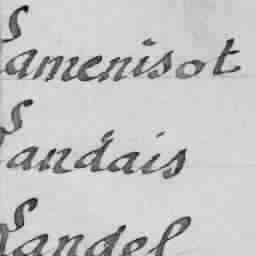 Lamenisot
Landais
Landel